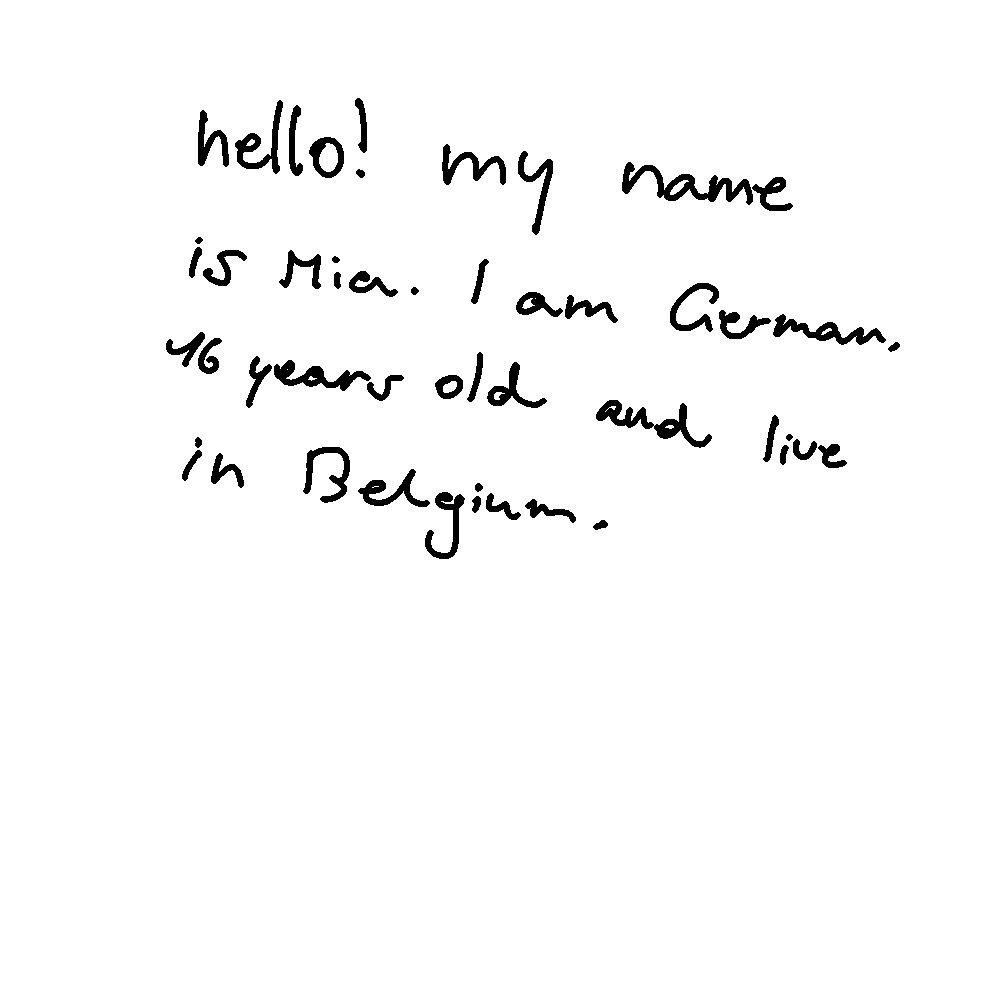 hello! my name
is Mia. I am German,
16 years old and live
in Belgium.